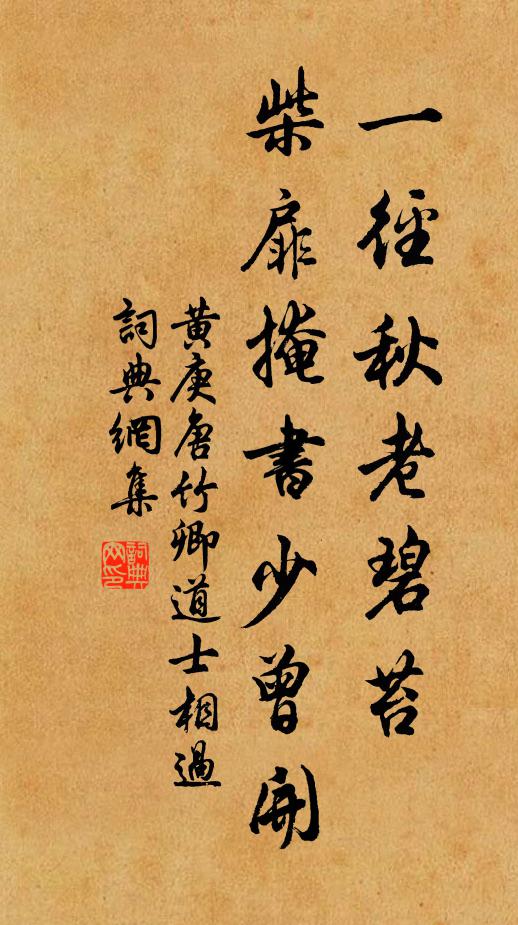 一徑秋老碧苔
柴扉掩書少曾開
黃庚唐竹卿道士相過
詞典網集
詞典网印